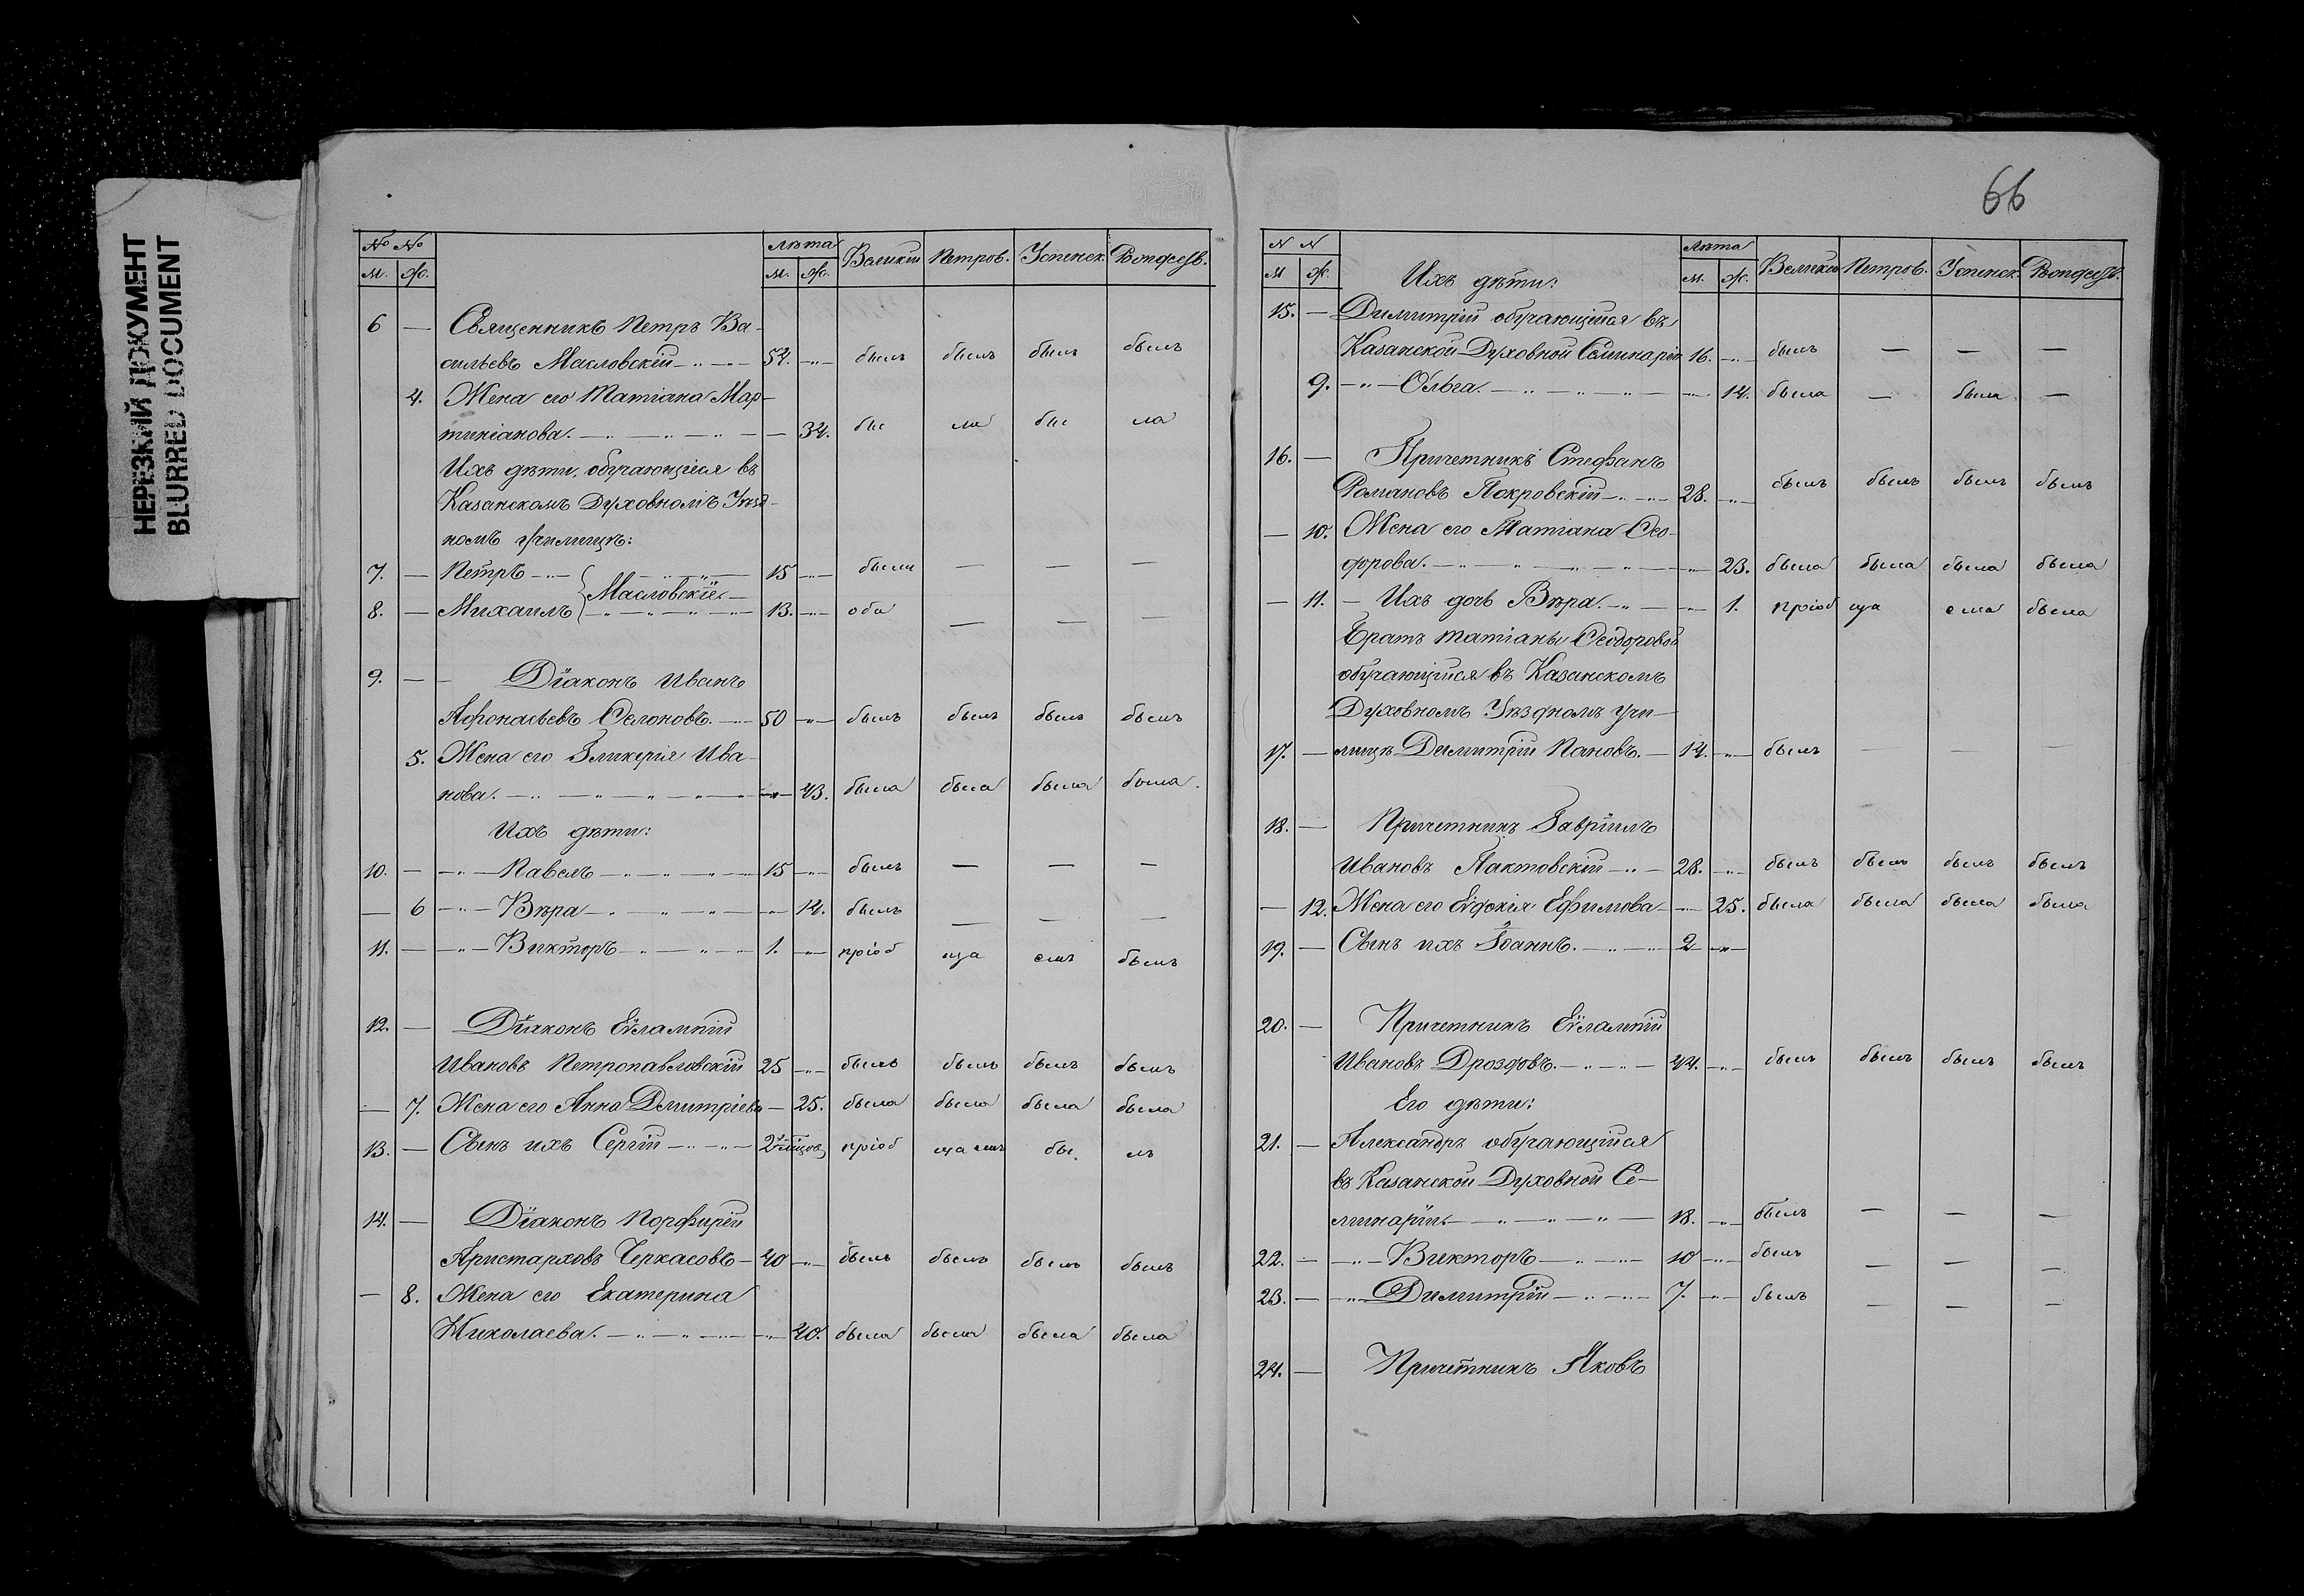 НЕРЕЗКІЙ ДОКУМЕНТ
BLURRED DOCUMENT
№ № лѣта Великій Петров. Успенск. Рождеств.
м. ж. м. ж.
6 — Священникъ Петръ Ва-
сильевъ Масловскій —〃— 52. —〃— былъ былъ былъ былъ
4. Жена его Татіана Мар-
тиніанова. —〃—〃—〃— — 32. бы ла бы ла
Ихъ дѣти, обучающіеся въ
Казанскомъ Духовномъ Уѣзд-
номъ училищѣ:
7. — Петръ —〃— 15 —〃— были — — —
Масловскіе
8. — Михаилъ —〃—〃— 13. —〃— оба — — —
9. — — Діаконъ Иванъ
Афонасьевъ —〃— 50 —〃— былъ былъ былъ былъ
5. Жена его Гликерія Ива-
нова. —〃—〃—〃—〃— 43. была была была была.
Ихъ дѣти:
10. — —〃— Павелъ —〃—〃— 15 —〃— былъ — — —
— 6 —〃— Вѣра —〃—〃— 12. былъ — — —
11. — —〃— Викторъ —〃—〃— 1. —〃— пріоб ща елъ былъ
12. — Діаконъ Евлампій
Ивановъ Петропавловскій 25 —〃— былъ былъ былъ былъ
— 7. Жена его Анна Димитріева — 25. была была была была
13. — Сынъ ихъ Сергій —〃—〃— 2 пріоб ща елъ бы. лъ
14. — Діаконъ Порфирій
Аристарховъ Черкасовъ — 40 —〃— былъ былъ былъ былъ
— 8. Жена его Екатерина
Николаева. —〃—〃—〃— 40. была была была была
66
N N лѣта Великій Петров. Успенск. Рождеств.
м ж. м. ж.
Ихъ дѣти:
15. — Димитрій обучающійся въ
Казанской Духовной Семинаріи 16. —〃— былъ — — —
9. —〃— Ольга. —〃—〃—〃— 14. была — была —
16. — Причетникъ Стефанъ
Романовъ Покровскій —〃— 28. —〃— былъ былъ былъ былъ
— 10. Жена его Татіана Ѳео-
дорова. —〃—〃—〃— 23. была была была была
— 11. — Ихъ дочь Вѣра. —〃— —〃— 1. пріоб ща ела была
Братъ Татіаны Ѳеодоровой
обучающійся въ Казанскомъ
Духовномъ Уѣздномъ учи-
17. — лищѣ Димитрій Пановъ. — 14. —〃— былъ — — —
18. — Причетникъ Гавріилъ
Ивановъ Пактовскій —〃— 28. —〃— былъ былъ былъ былъ
— 12. Жена его Евдокія Ефимова —〃— 25. была была была была
19. — Сынъ ихъ Іоаннъ. —〃—〃— 2 —〃—
20. — Причетникъ Евлампій
Ивановъ Дроздовъ. —〃—〃— 44. —〃— былъ былъ былъ былъ
Его дѣти:
21. — Александръ обучающійся
въ Казанской Духовной Се-
минаріи. —〃—〃— 18. —〃— былъ — — —
22. — —〃— Викторъ —〃—〃— 10 —〃— былъ — — —
23. — —〃— Димитрій —〃—〃— 7. —〃— былъ — — —
24. — Причетникъ Яковъ